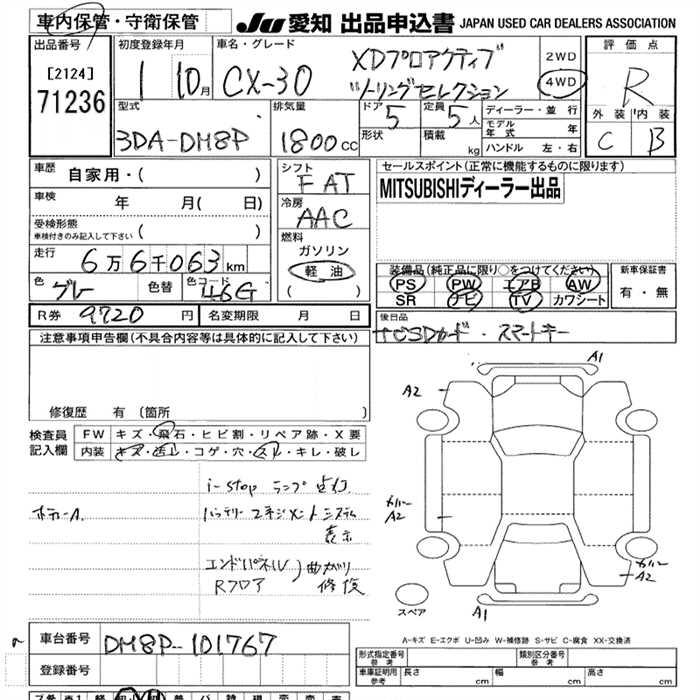 車内保管・守衛保管
JU 愛知 出品申込書 JAPAN USED CAR DEALERS ASSOCIATION
出品番号
[2124]
71236
初度登録年月
1 10月
車名・グレード
CX-30 XDプロアクティブ
ツーリングセレクション
2WD
4WD
評価点
R
外装 内装
C B
型式
3DA-DM8P
排気量
1800cc
ドア 5
形状
定員 5人
積載 kg
ディーラー・並行
モデル年式 年
ハンドル 左・右
車歴 自家用・( )
車検 年 月( 日)
受検形態
車検付きのみ記入して下さい ( )
走行 6万6千063km
色 グレー 色替 色コード 46G
シフト
F AT
冷房
AAC
燃料
ガソリン
軽油
( )
セールスポイント(正常に機能するものに限ります)
MITSUBISHIディーラー出品
装備品(純正品に限り○をつけてください)
PS PW エアB AW
SR ナビ TV カワシート
新車保証書
有・無
R券 9720円 名変期限 月 日
後日品
ナビSDカード・スマートキー
注意事項申告欄(不具合内容等は具体的に記入して下さい)
修復歴 有 (箇所
検査員記入欄
FW キズ・飛石・ヒビ割・リペア跡・X要
内装 キズ・汚レ・コゲ・穴・スレ・キレ・破レ
i-stop ランプ点灯
ボデーA.
バッテリーマネジメントシステム
表示
エンドパネル
Rフロア
曲がり
修復
A1
A2
A2
A2
A1
スペア
A-キズ E-エクボ U-凹み W-補修跡 S-サビ C-腐食 XX-交換済
車台番号 DM8P-101767
登録番号
形式指定番号
参考
類別区分番号
参考
車庫証明用
参考
長さ cm 幅 cm 高さ cm